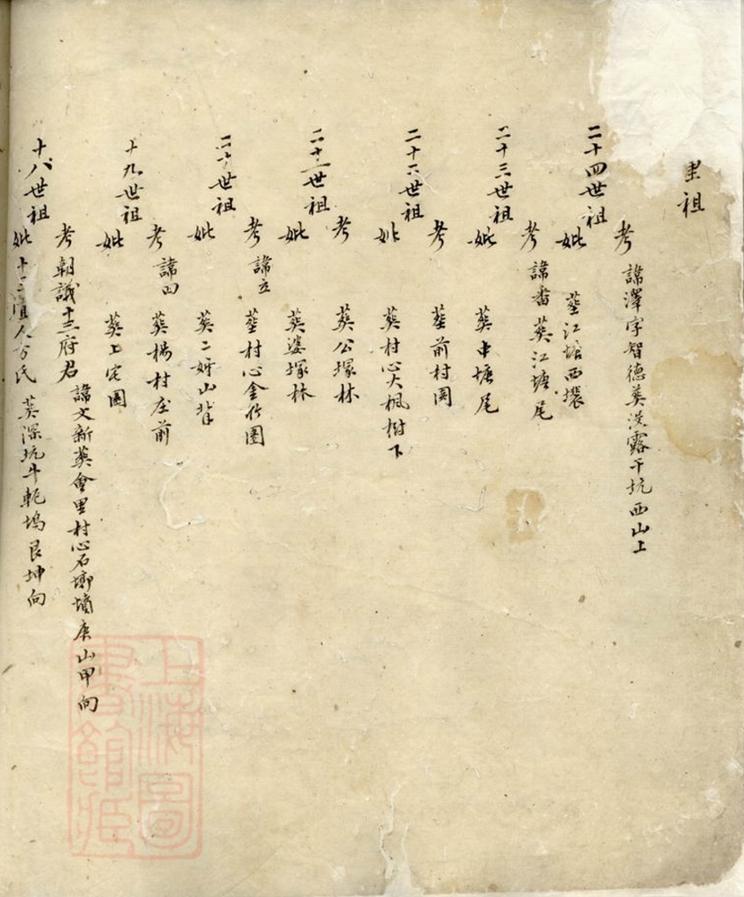 里祖
二十四世祖
考 諱澤字智德葬洪露干坑西山上
妣 葬江塘西壩
二十三世祖
考 諱番 葬江塘尾
妣 葬中塘尾
二十二世祖
考 葬前村園
妣 葬村心大楓樹下
二十一世祖
考 葬公塚林
妣 葬婆塚林
二十世祖
考 諱立 葬村心金竹園
妣 葬二好山背
十九世祖
考 諱四 葬楊村庄前
妣 葬上宅園
十八世祖
考 朝議十三府君 諱文新葬會里村心石塘墳庚山甲向
妣 十二 人方氏 葬深坑牛軛塢艮坤向
上海圖書館藏